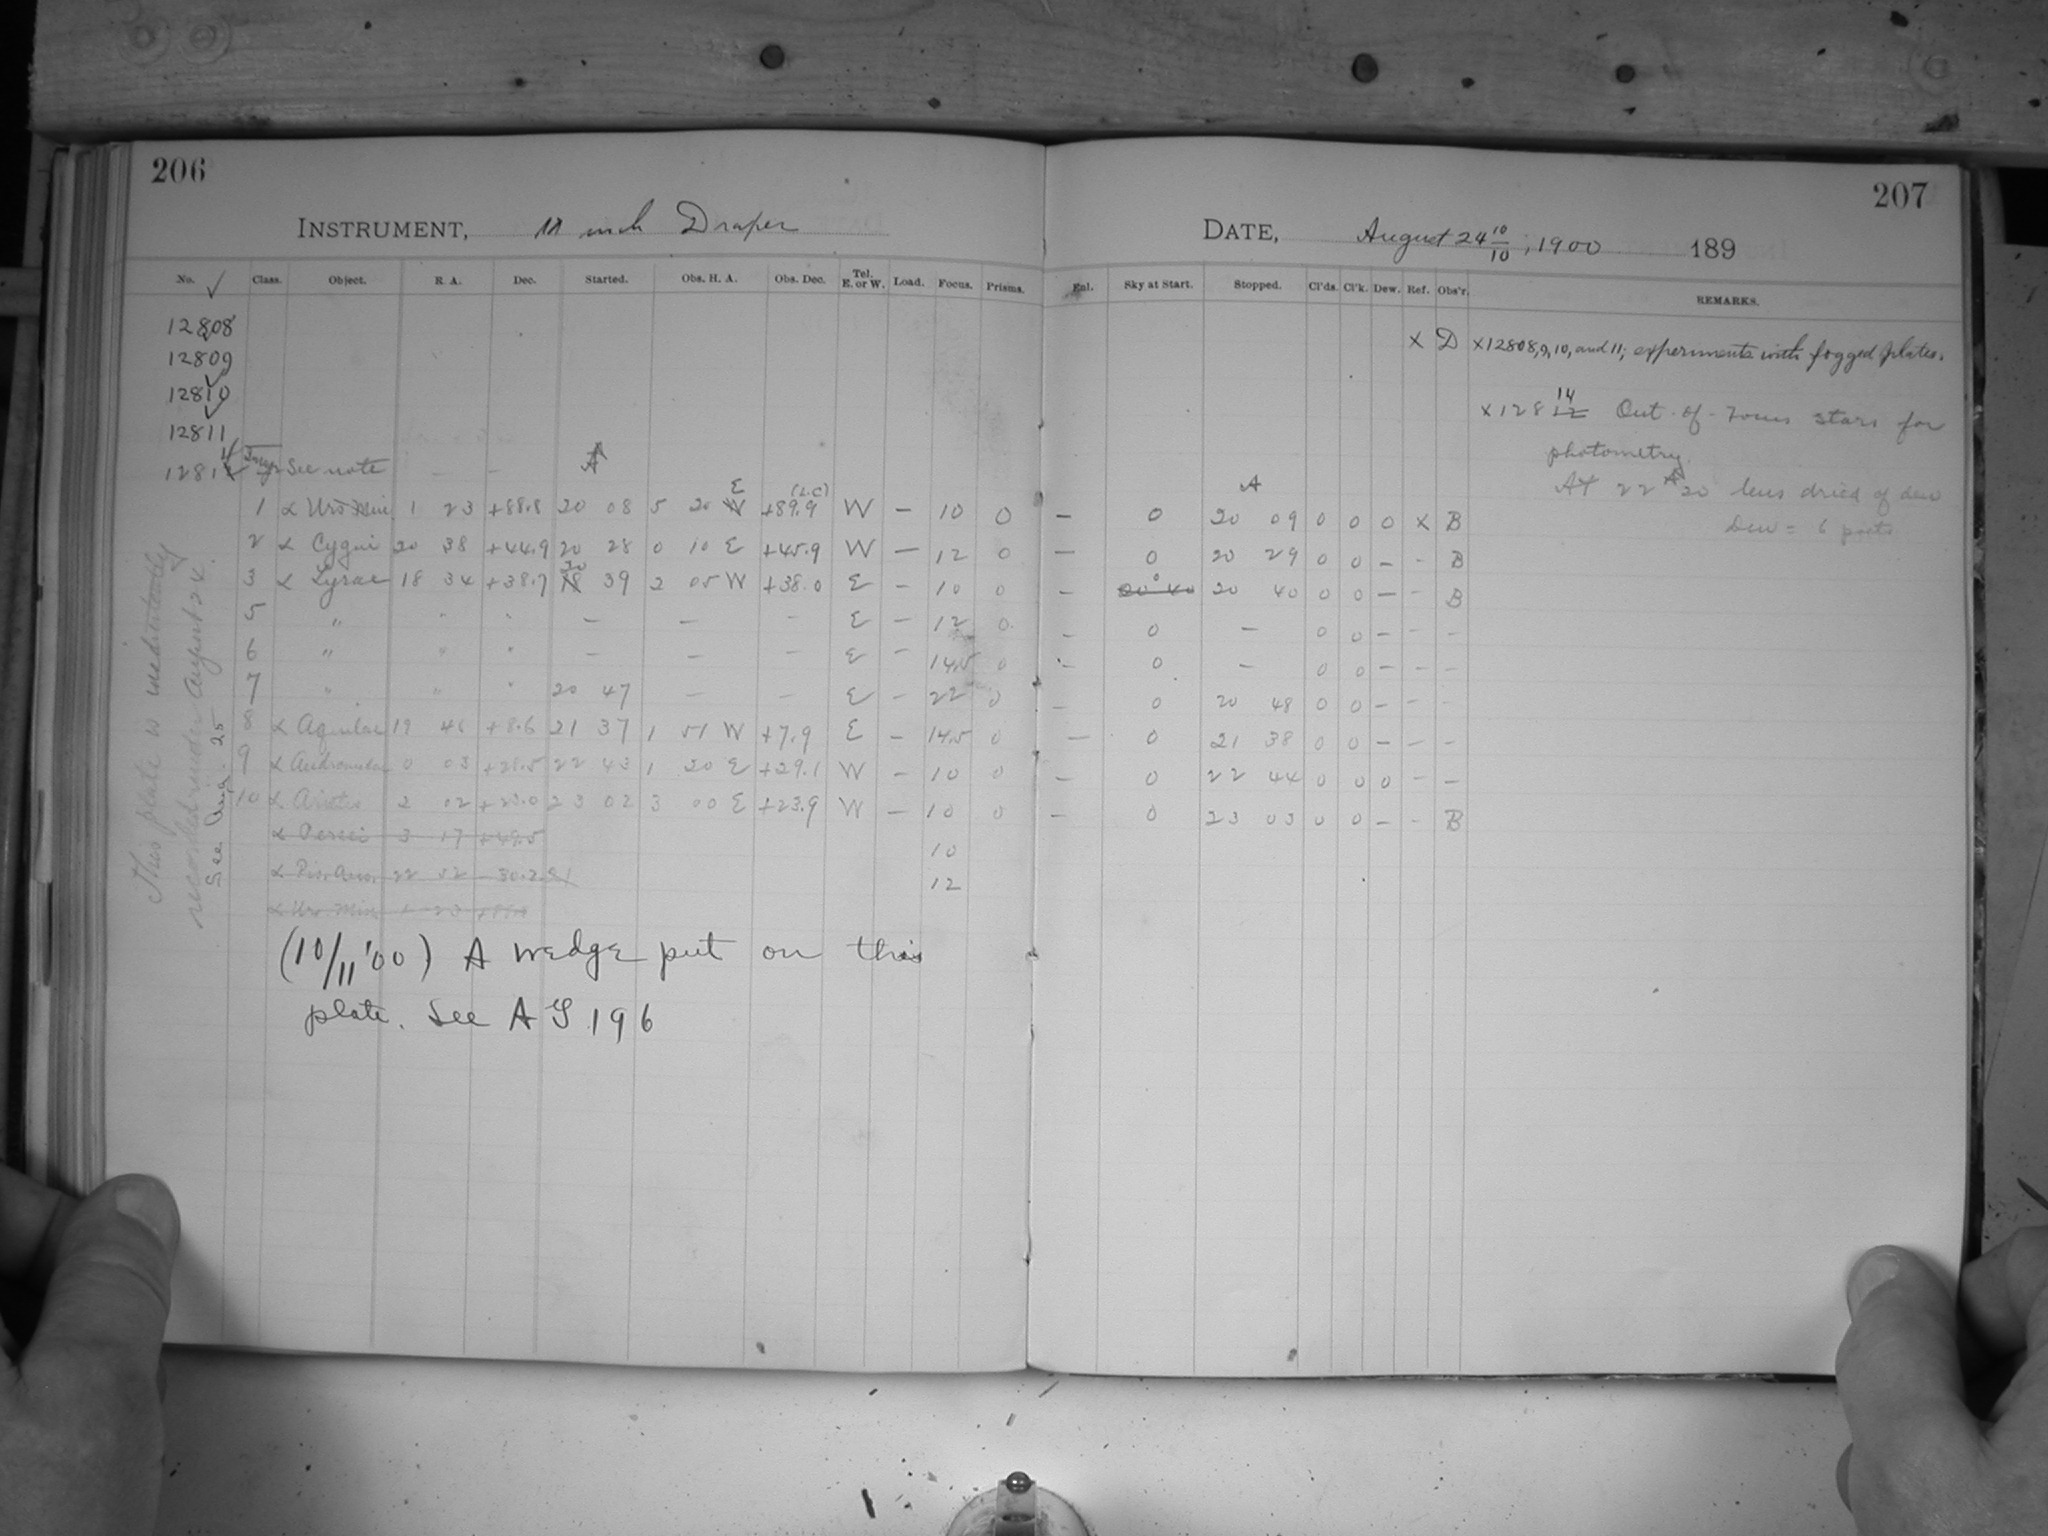 206
207
INSTRUMENT, 11 inch Draper
DATE, August 24 10/10, 1900 189
No. ✓ Class. Object. R. A. Dec. Started. Obs. H. A. Obs. Dec. Tel. E. or W. Load. Focus. Prisms. Enl. Sky at Start. Stopped. Cl'ds. Cl'k. Dew. Ref. Obs'r. REMARKS.
12808 X D X12808,9,10, and 11; experiments with fogged plates.
12809
12810
12811
X128 12 14 Out-of-Focus stars for
photometry.
See note
At 22 20 lens dried of dew
Dew = 6 parts
1 α Urs Min 1 23 +88.8 20 08 5 20 W E +89.9 (L.C) W — 10 0 — 0 20 09 0 0 0 X B
2 α Cygni 20 38 +44.9 20 28 0 10 E +45.9 W — 12 0 — 0 20 29 0 0 — B
3 α Lyrae 18 34 +38.7 18 20 39 2 05 W +38.0 E — 10 0 — 20 40 0 20 40 0 0 — - B
5 " " " — — — E — 12 0 — 0 — 0 0 — - -
6 " " " — — — E — 14.5 0 — 0 — 0 0 — - -
7 " " " 20 47 — — E — 22 0 — 0 20 48 0 0 — - -
8 α Aquilae 19 46 +8.6 21 37 1 51 W +7.9 E — 14.5 0 — 0 21 38 0 0 — - -
9 α Andromedae 0 03 +28.5 22 43 1 20 E +29.1 W — 10 0 — 0 22 44 0 0 0 - —
10 α Arietis 2 02 +23.0 23 02 3 00 E +23.9 W — 10 0 — 0 23 03 0 0 — - B
α Persei 3 17 +49.5 10
α Pis. Aus. 22 52 -30.2 21 12
α Urs. Min. 1 23
(10/11 '00) A wedge put on this
plate. See A G 196
This plate is inadvertently
recorded under August 24.
See Aug. 25